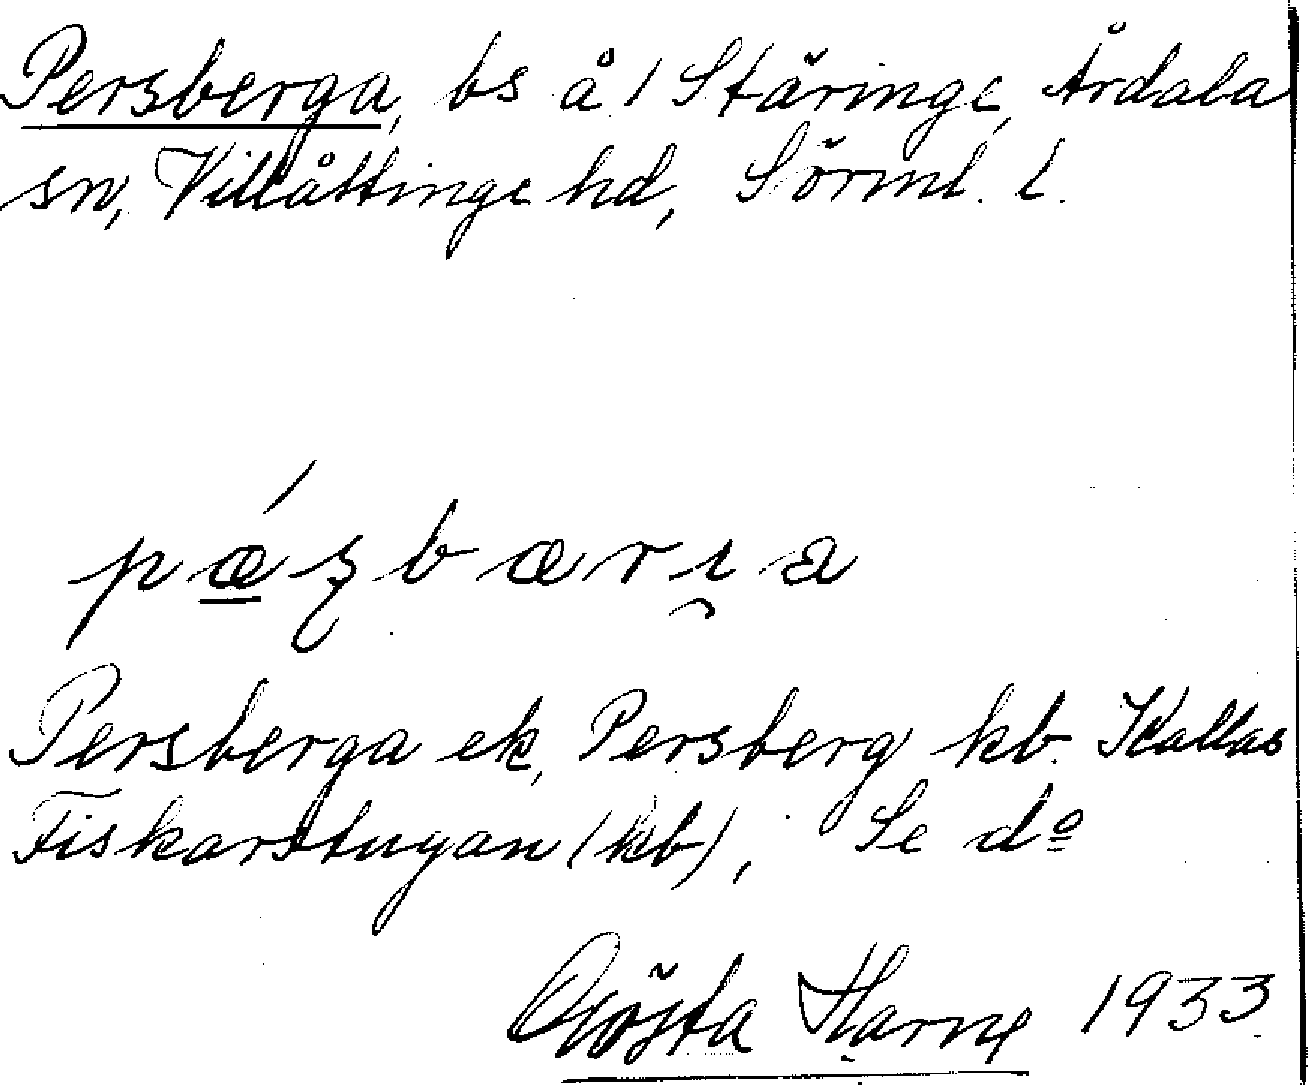 Persberga, bs å / Stäringe, Årdala
sn, Villåttinge hd, Sörml. l.
pǽʂbærı̯a
Persberga ek, Persberg kb. Kallas
Fiskarstugan (kb), Se dº
Gösta Harne 1933